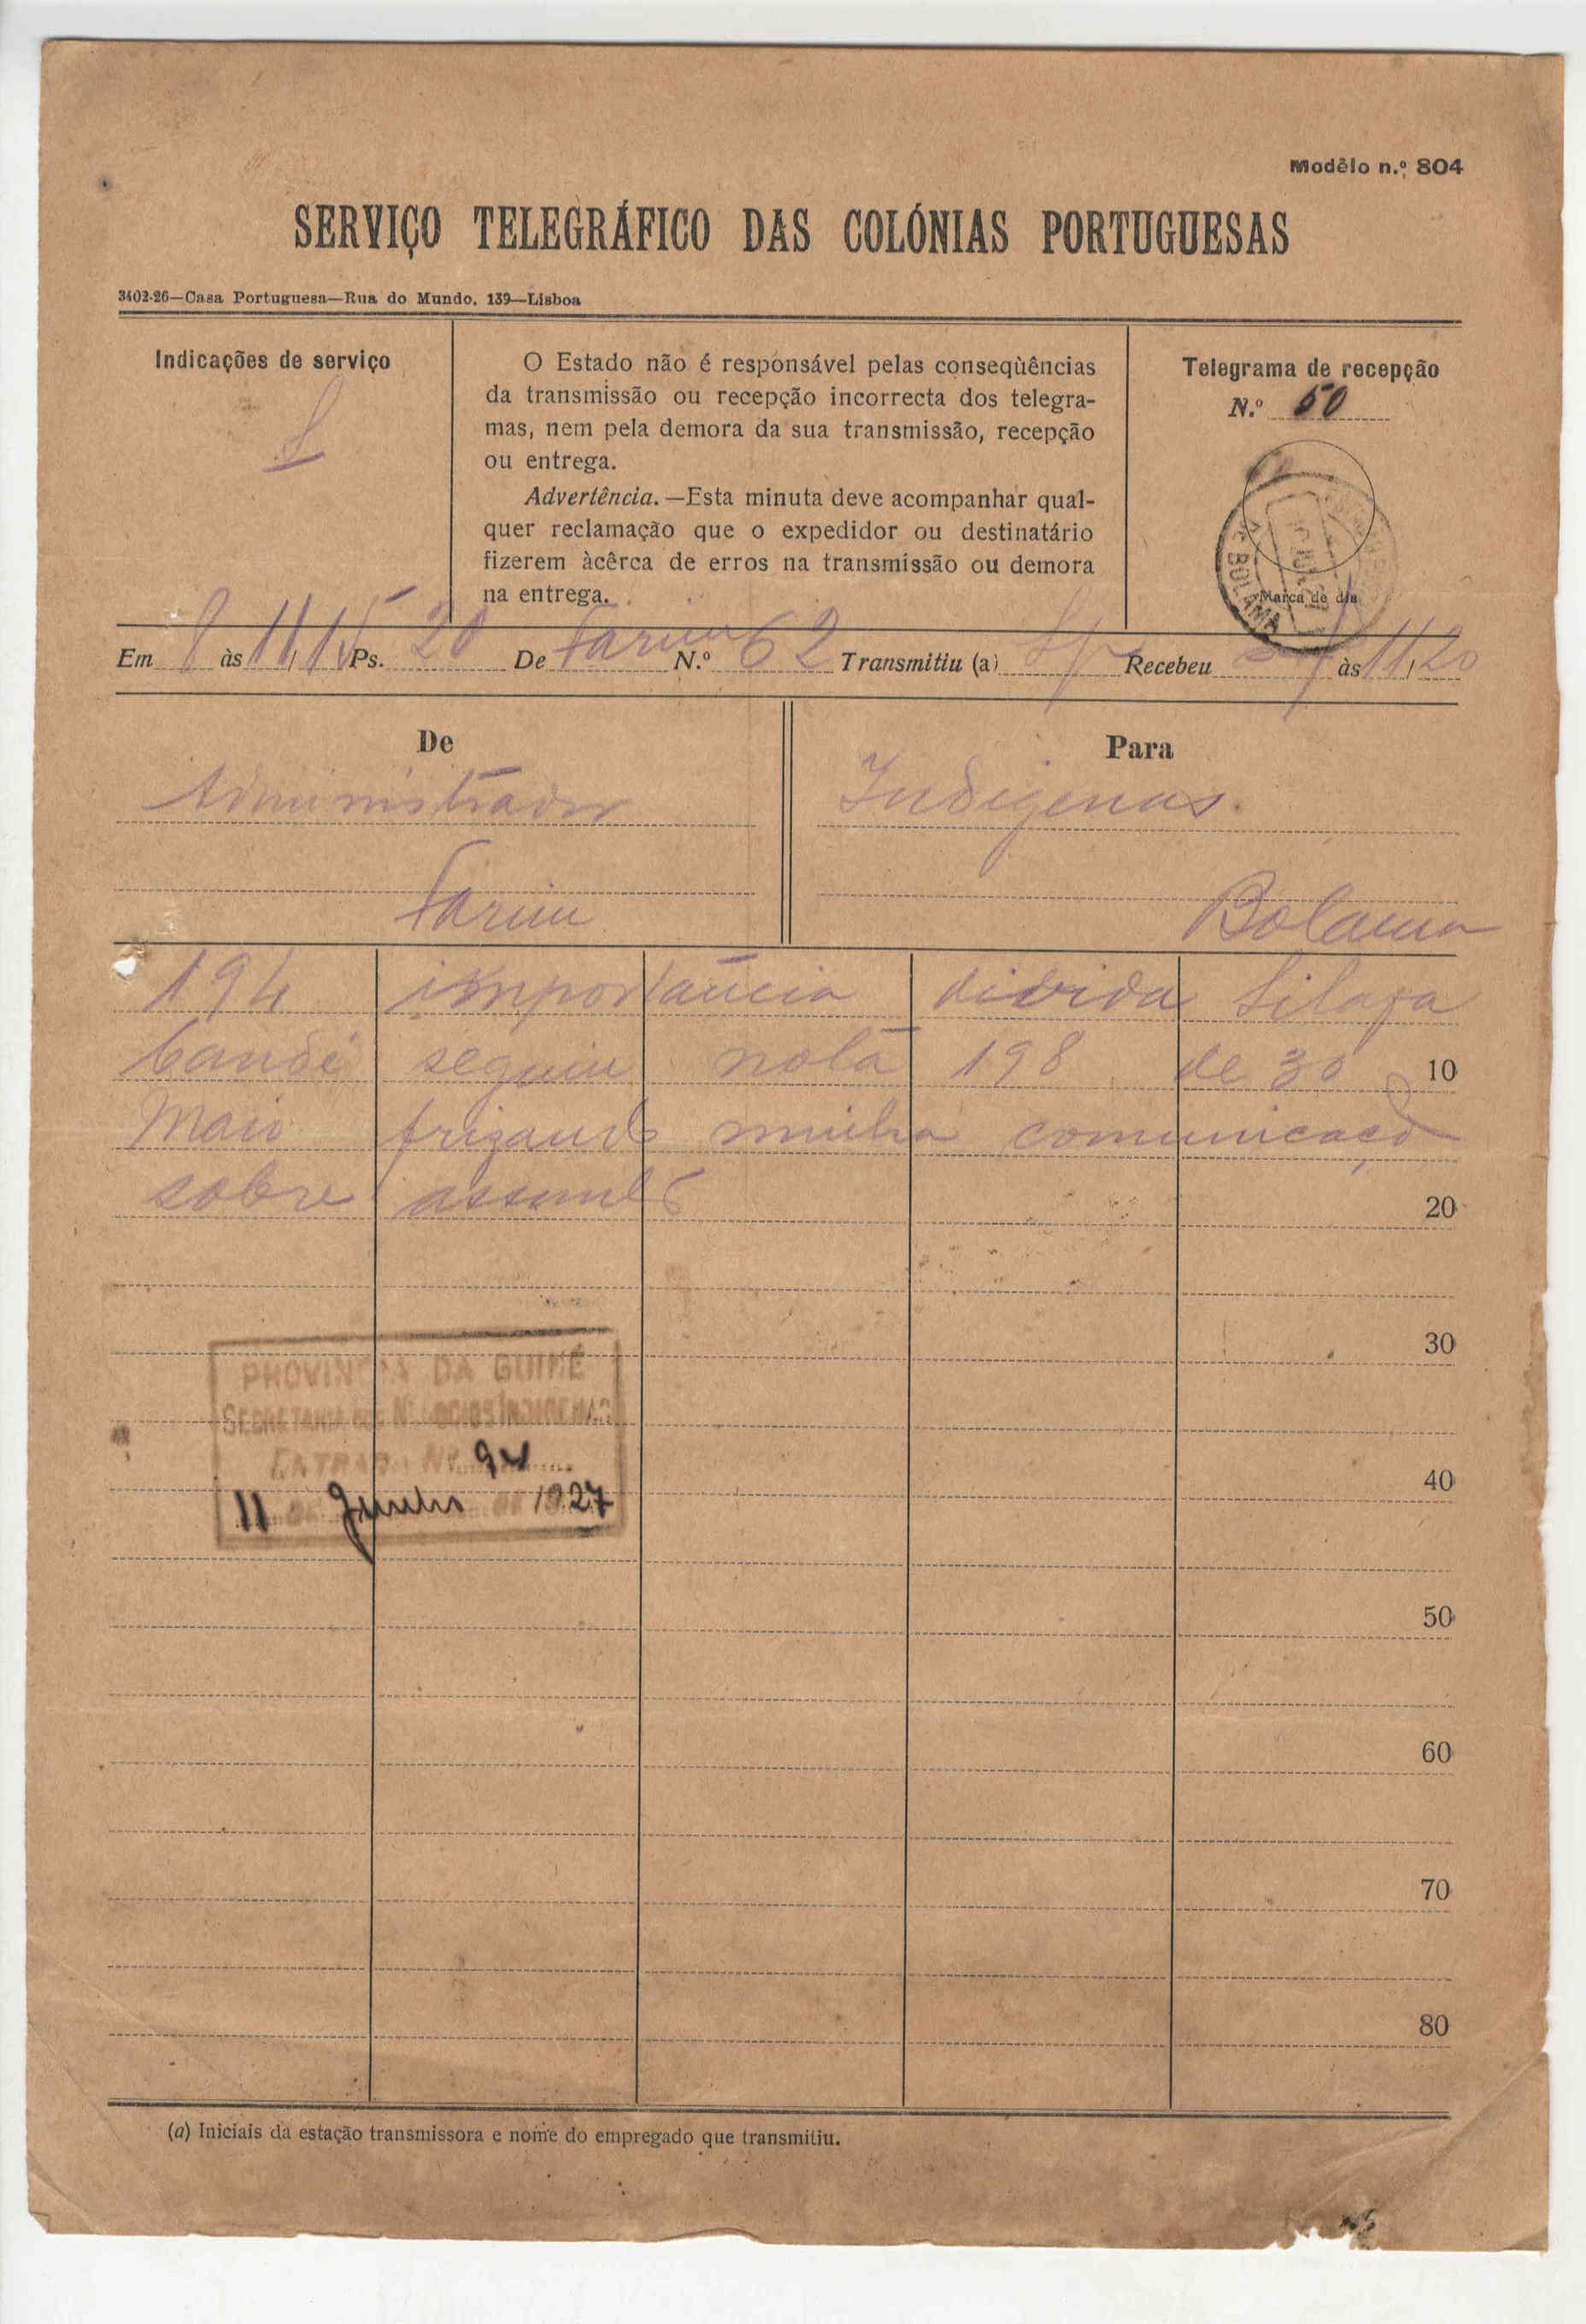 Modêlo n.º 804
SERVIÇO TELEGRÁFICO DAS COLÓNIAS PORTUGUESAS
3402-26—Casa Portuguesa—Rua do Mundo, 139—Lisboa
Indicações de serviço
S
O Estado não é responsável pelas conseqùências
da transmissão ou recepção incorrecta dos telegra-
mas, nem pela demora da sua transmissão, recepção
ou entrega.
Advertência.—Esta minuta deve acompanhar qual-
quer reclamação que o expedidor ou destinatário
fizerem àcêrca de erros na transmissão ou demora
na entrega.
Telegrama de recepção
N.º 50
BOLAMA
Marca de dia
Em 9 às 11/15 Ps. 20 De Farim N.º 62 Transmitiu (a) Recebeu às 11/20
De
Administrador
Farim
Para
Indigenas.
Bolama
194 importancia divida
seguiu nota 198 de 30 10
Maio frizando minha comunicação
sobre assunto 20
30
PROVINCIA DA GUINÉ
SECRETARIA DOS NEGOCIOS INDIGENAS
ENTRADA Nº 94
11 DE Junho DE 1927
40
50
60
70
80
(a) Iniciais da estação transmissora e nome do empregado que transmitiu.